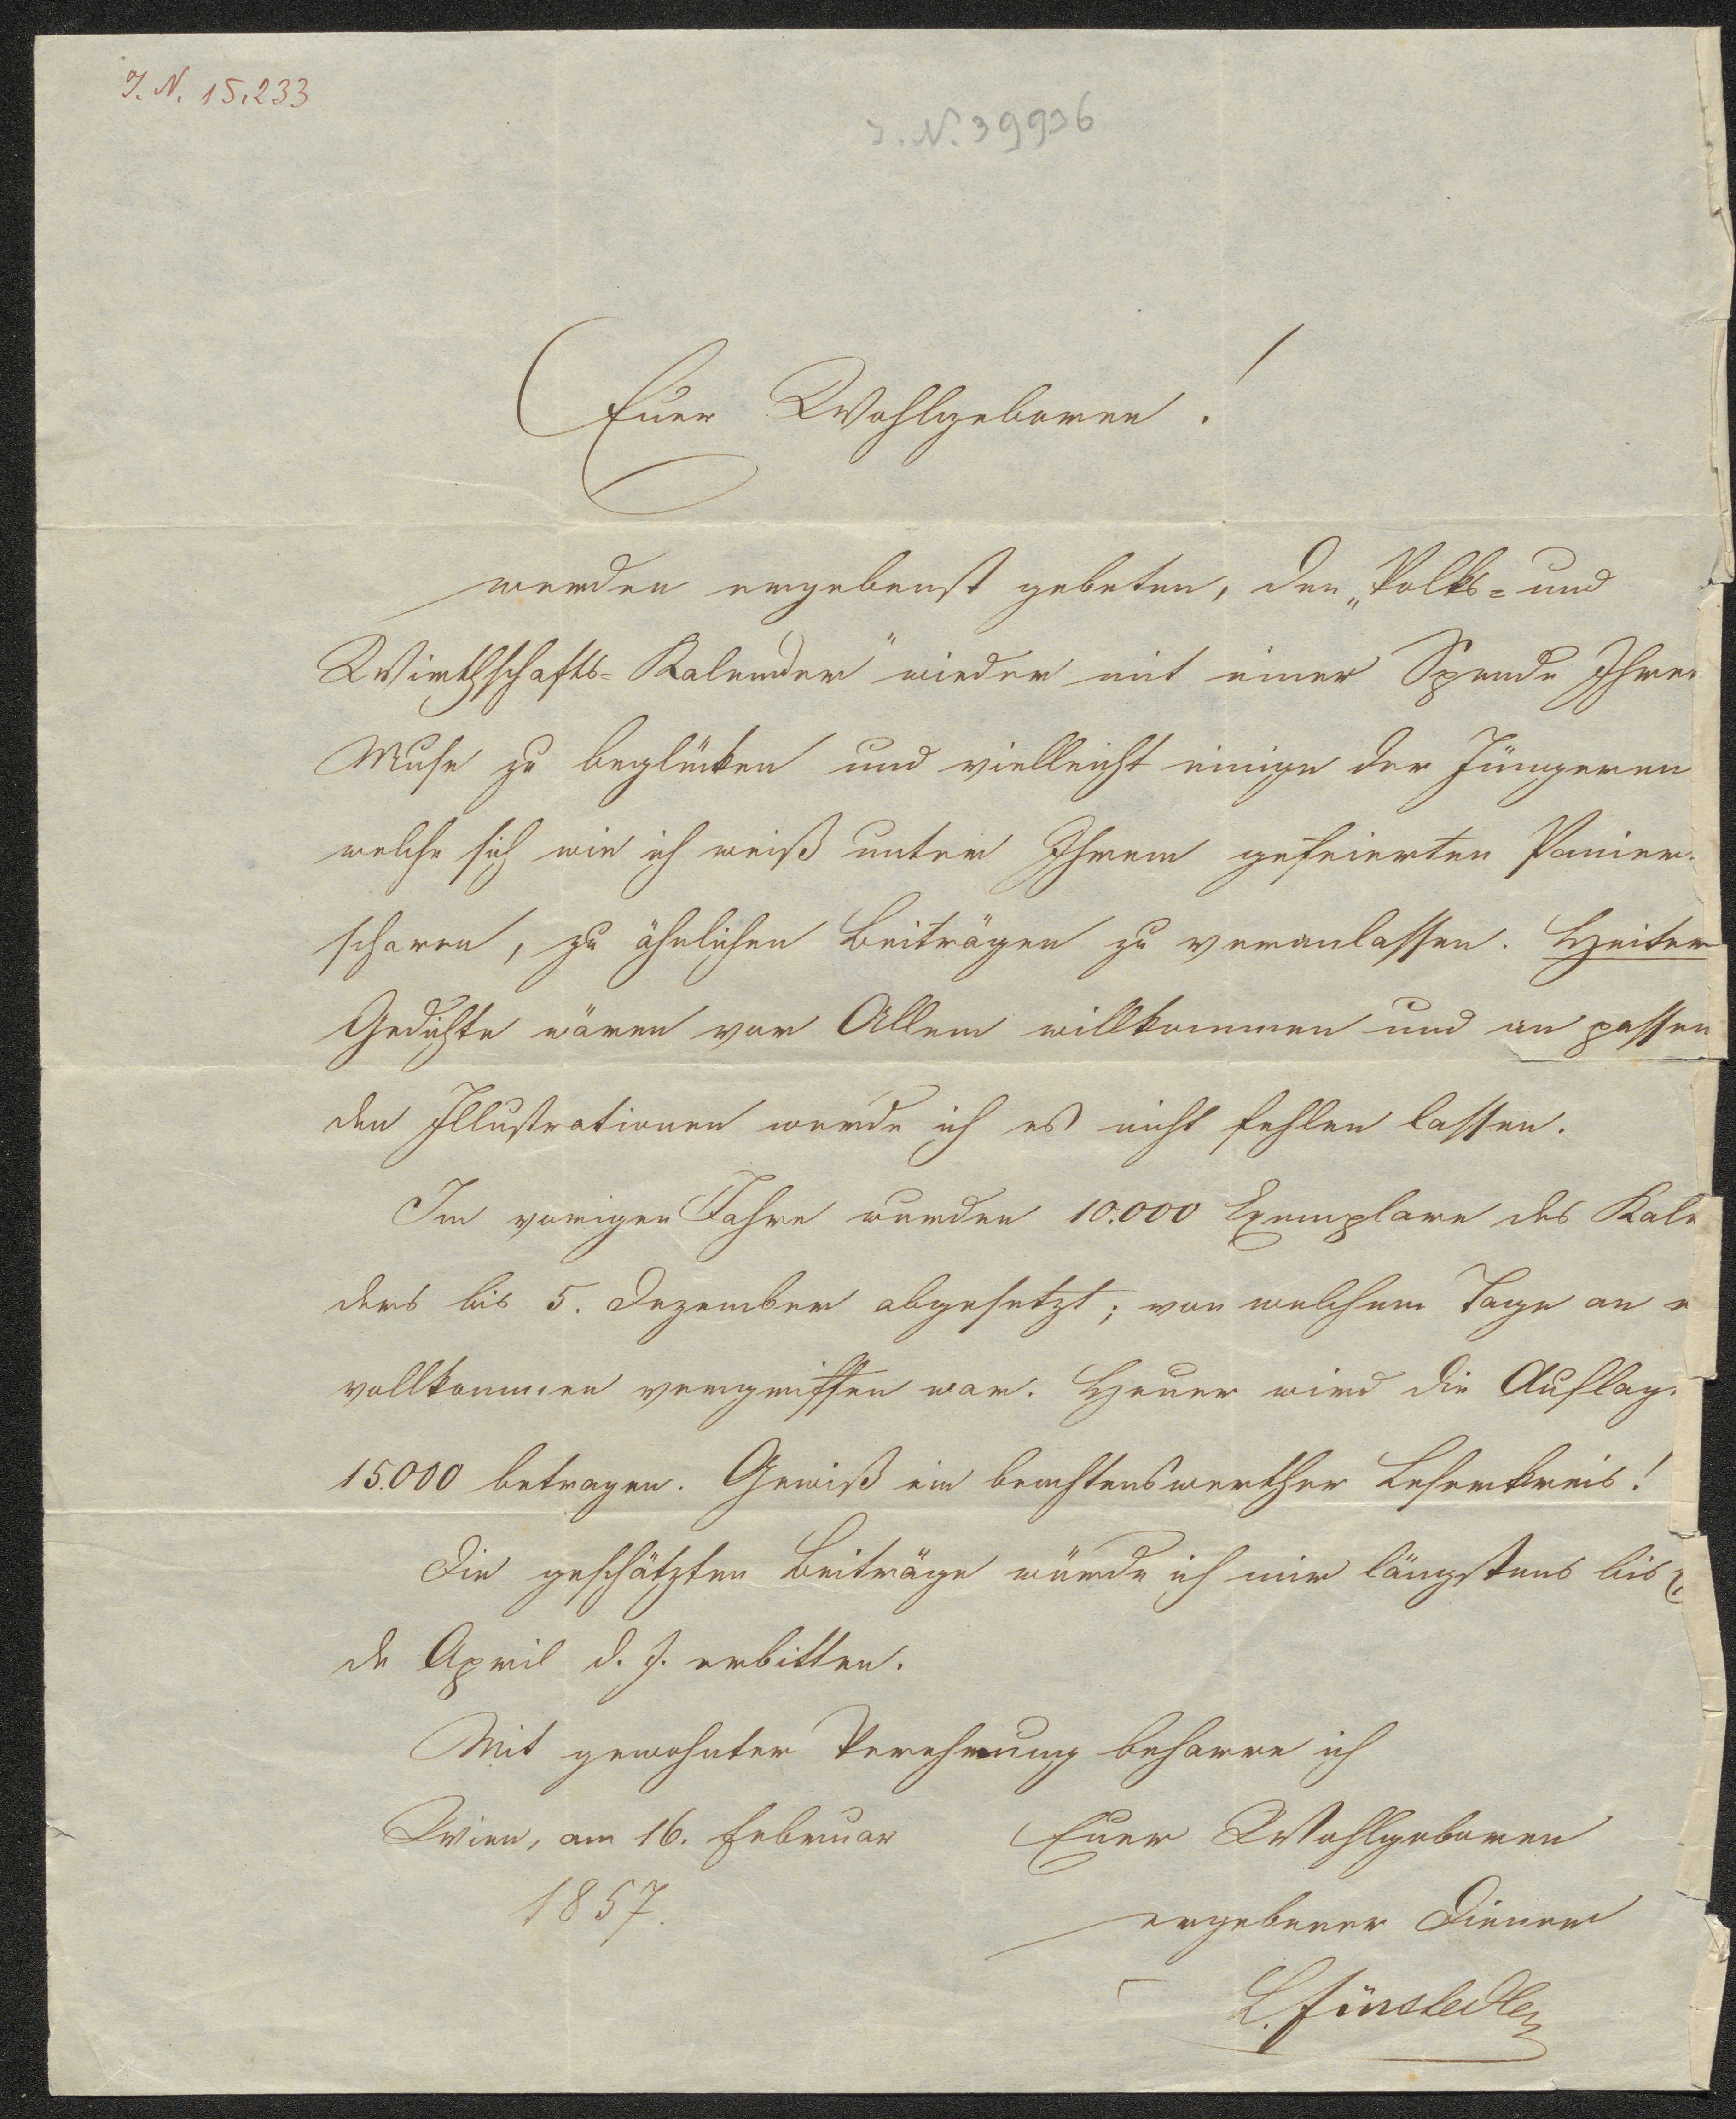 J. N. 15.233
J. N. 39936
Euer Wohlgeboren!
werden ergebenst gebeten, den „Volks= und
Wirthschafts=Kalender" wieder mit einer Spende Ihrer
Muse zu beglücken und vielleicht einige der Jüngeren
welche sich wie ich weiß unter Ihrem gefeierten Panier
scharen, zu ähnlichen Beiträgen zu veranlassen. Heiter
Gedichte wären vor Allem willkommen und an passen
den Illustrationen werde ich es nicht fehlen lassen.
Im vorigen Jahre wurden 10.000 Exemplare des Kale
ders bis 5. Dezember abgesetzt; von welchem Tage an e
vollkommen vergriffen war. Heuer wird die Auflage
15.000 betragen. Gewiß ein beachtenswerther Leserkreis!
Die geschätzten Beiträge würde ich mir längstens bis
de April d. J. erbitten.
Mit gewohnter Verehrung beharre ich
Wien, am 16. Februar Euer Wohlgeboren
1857. ergebener Diener